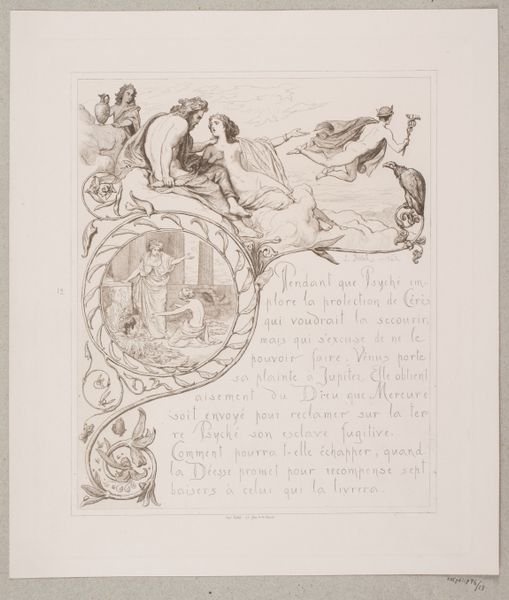 Pendant que Psyché im-
plore la protection de Cérès
qui voudrait la secourir,
mais qui s'excuse de ne le
pouvoir faire. Vénus porte
sa plainte à Jupiter. Elle obtient
aisement du Dieu que Mercure
soit envoyé pour reclamer sur la ter
re Psyché son esclave fugitive.
Comment pourra t-elle échapper, quand
la Déesse promet pour recompense sept
baisers à celui qui la livrera.